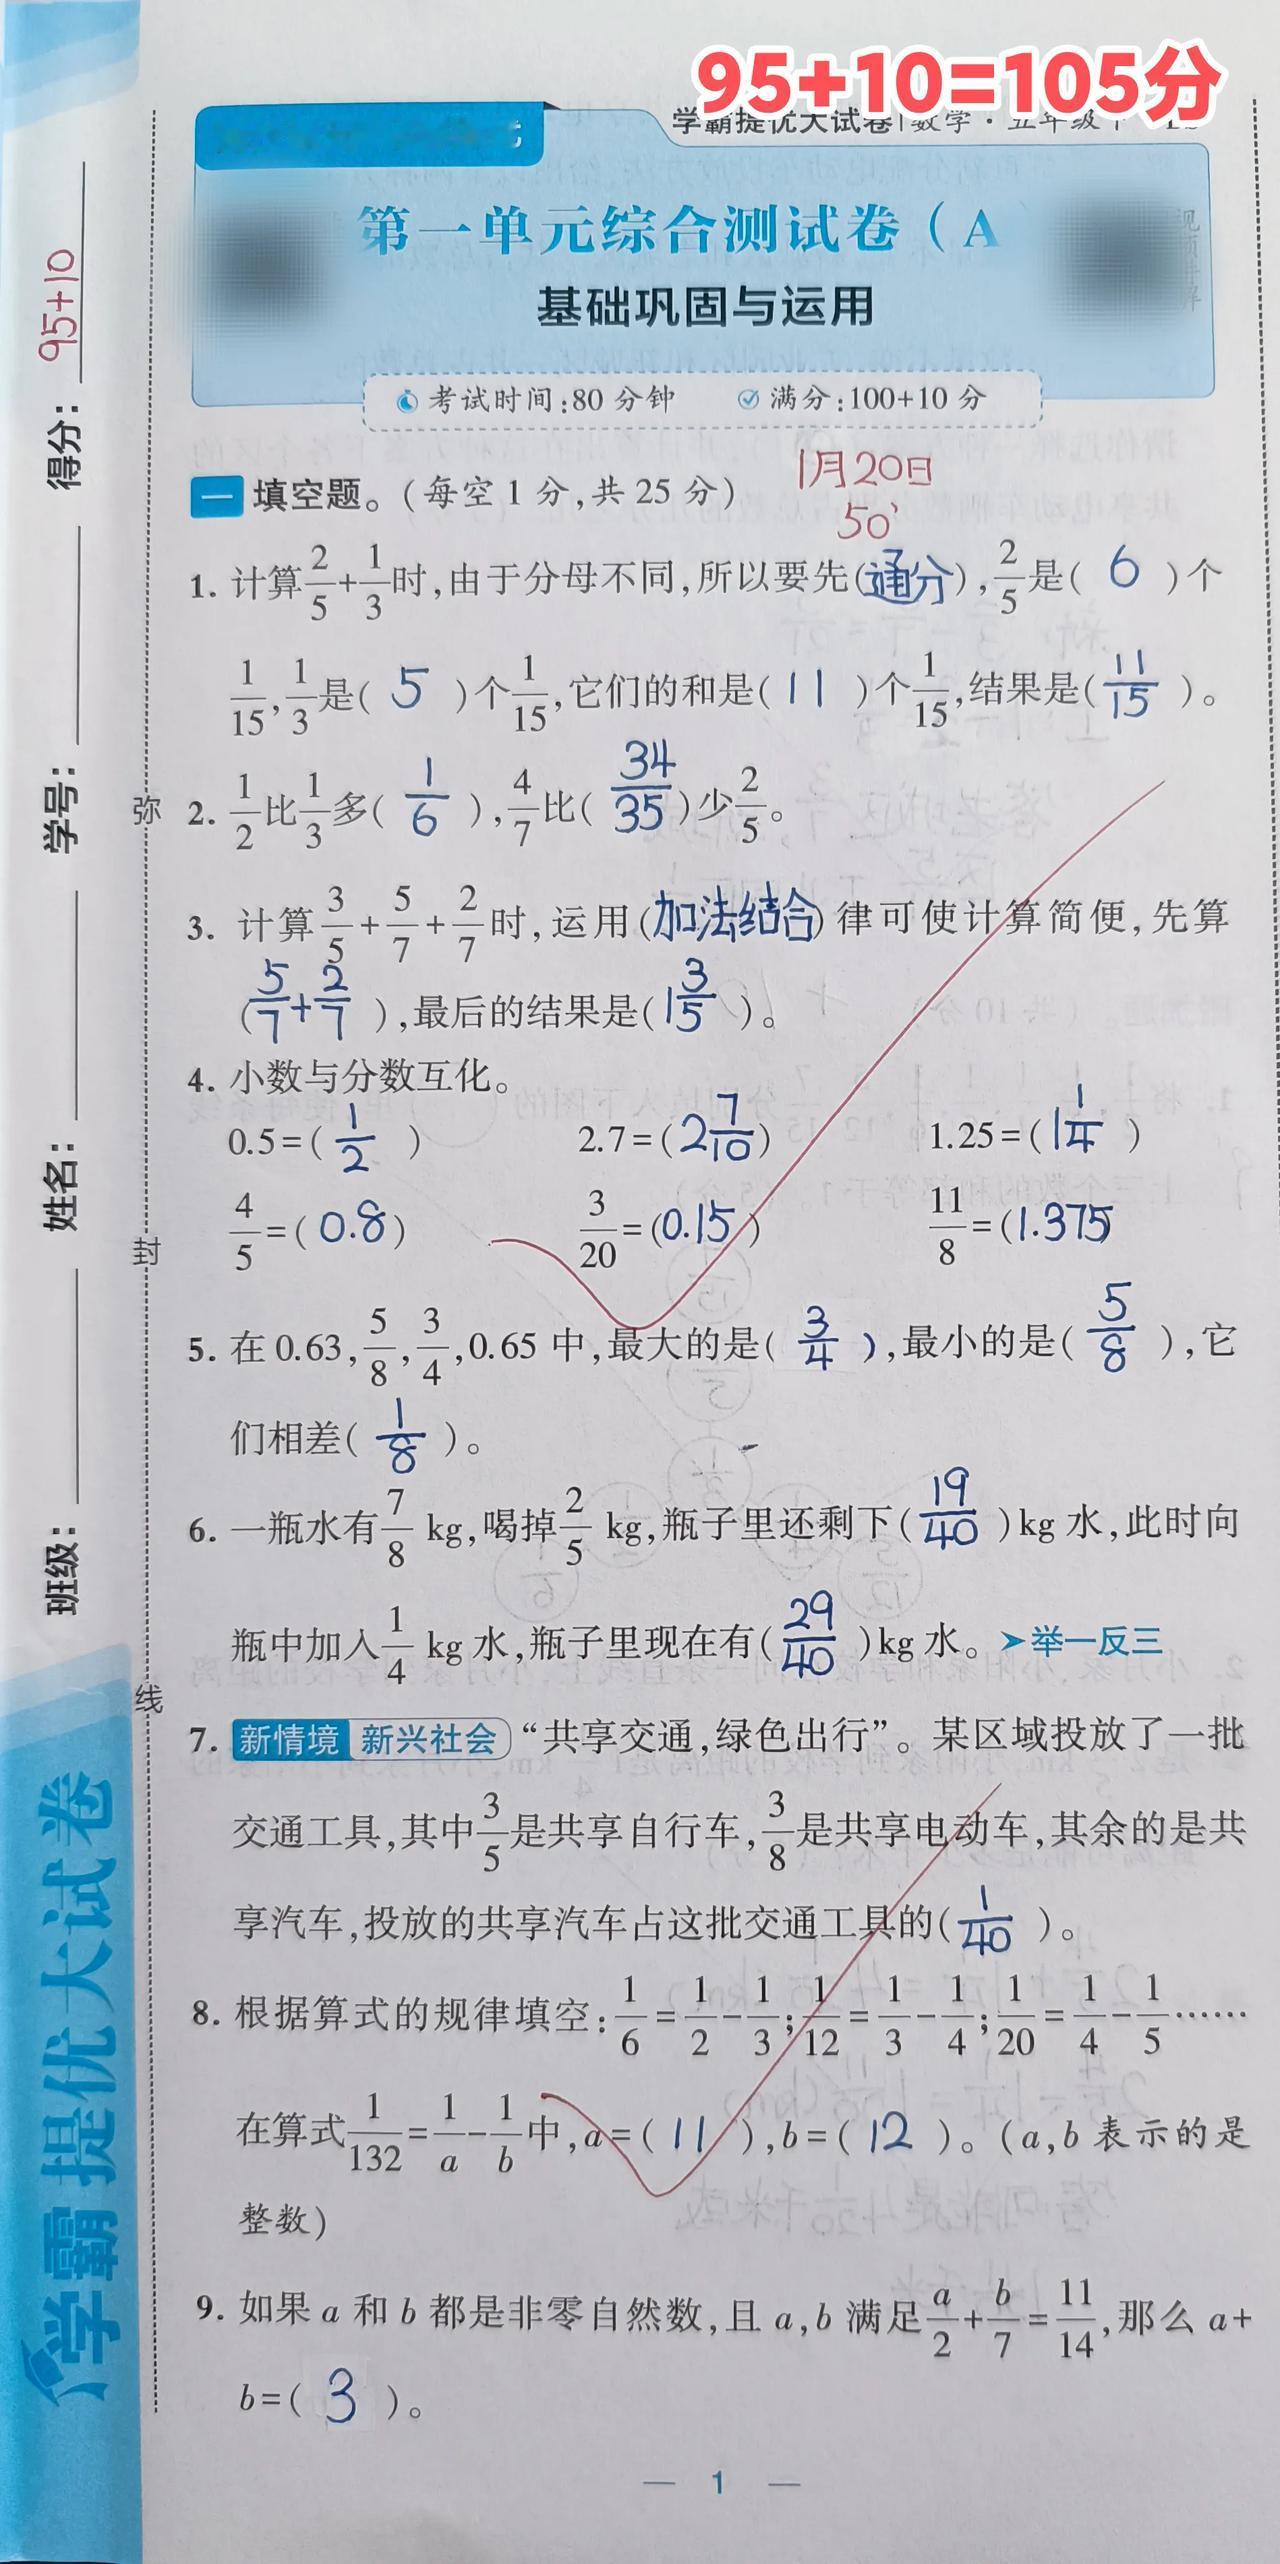 95+10=105分
学霸提优大试卷 数学·五年级下
第一单元综合测试卷(A
基础巩固与运用
考试时间:80分钟 满分:100+10分
1月20日
50'
一 填空题。(每空1分,共25分)
1. 计算2/5+1/3时,由于分母不同,所以要先(通分),2/5是( 6 )个
1/15,1/3是( 5 )个1/15,它们的和是( 11 )个1/15,结果是( 11/15 )。
2. 1/2比1/3多( 1/6 ),4/7比( 34/35 )少2/5。
3. 计算3/5+5/7+2/7时,运用(加法结合)律可使计算简便,先算
( 5/7+2/7 ),最后的结果是( 1 3/5 )。
4. 小数与分数互化。
0.5=( 1/2 ) 2.7=( 2 7/10 ) 1.25=( 1 1/4 )
4/5=( 0.8 ) 3/20=( 0.15 ) 11/8=( 1.375
5. 在0.63,5/8,3/4,0.65中,最大的是( 3/4 ),最小的是( 5/8 ),它
们相差( 1/8 )。
6. 一瓶水有7/8 kg,喝掉2/5 kg,瓶子里还剩下( 19/40 )kg水,此时向
瓶中加入1/4 kg水,瓶子里现在有( 29/40 )kg水。➤举一反三
7. 新情境 新兴社会 “共享交通,绿色出行”。某区域投放了一批
交通工具,其中3/5是共享自行车,3/8是共享电动车,其余的是共
享汽车,投放的共享汽车占这批交通工具的( 1/40 )。
8. 根据算式的规律填空:1/6=1/2-1/3;1/12=1/3-1/4;1/20=1/4-1/5……
在算式1/132=1/a-1/b中,a=( 11 ),b=( 12 )。(a,b表示的是
整数)
9. 如果a和b都是非零自然数,且a,b满足a/2+b/7=11/14,那么a+
b=( 3 )。
— 1 —
得分: 95+10
学号:
姓名:
班级:
弥
封
线
学霸提优大试卷